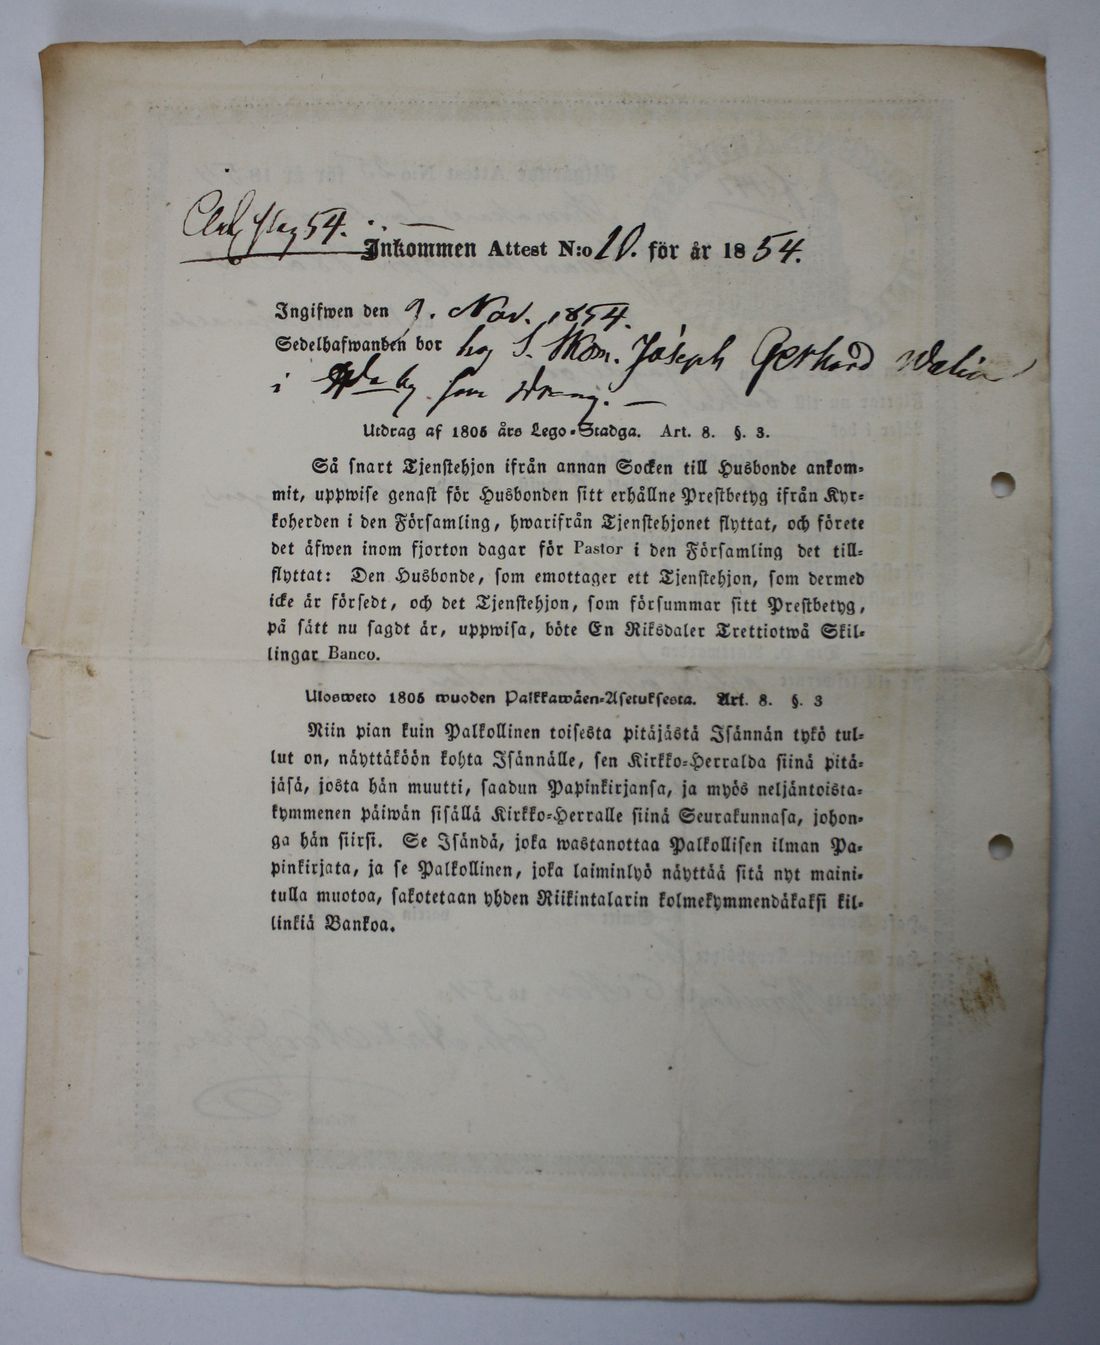 54.
Inkommen Attest N:o 10. för år 1854.
Ingifwen den 9. Nov. 1854.
Sedelhafwanden bor hos S. Skom. Joseph Gerhard Walin
i by som dräng.
Utdrag af 1805 års Lego-Stadga. Art. 8. §. 3.
Så snart Tjenstehjon ifrån annan Socken till Husbonde ankom-
mit, uppwise genast för Husbonden sitt erhållne Prestbetyg ifrån Kyr-
koherden i den Församling, hwarifrån Tjenstehjonet flyttat, och förete
det äfwen inom fjorton dagar för Pastor i den Församling det till-
flyttat: Den Husbonde, som emottager ett Tjenstehjon, som dermed
icke är försedt, och det Tjenstehjon, som försummar sitt Prestbetyg,
på sätt nu sagdt är, uppwisa, böte En Riksdaler Trettiotwå Skil-
lingar Banco.
Ulosweto 1805 wuoden Palkkawäen-Asetuksesta. Art. 8. §. 3
Niin pian kuin Palkollinen toisesta pitäjästä Isännän tykö tul-
lut on, näyttäköön kohta Isännälle, sen Kirkko-Herralda siinä pitä-
jäsä, josta hän muutti, saadun Papinkirjansa, ja myös neljäntoista-
kymmenen päiwän sisällä Kirkko-Herralle siinä Seurakunnasa, johon-
ga hän siirsi. Se Isändä, joka wastanottaa Palkollisen ilman Pa-
pinkirjata, ja se Palkollinen, joka laiminlyö näyttää sitä nyt maini-
tulla muotoa, sakotetaan yhden Riikintalarin kolmekymmendäkaksi kil-
linkiä Bankoa.